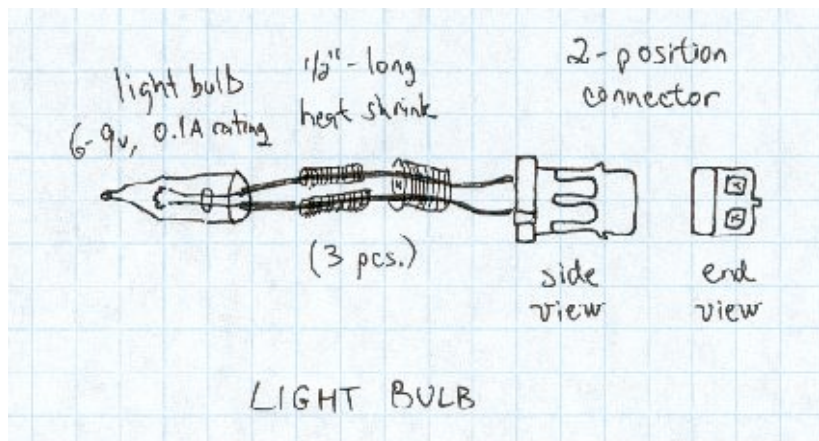 light bulb
6-9v, 0.1A rating
1/2"-long
heat shrink
2-position
connector
(3 pcs.)
side
view
end
view
LIGHT BULB